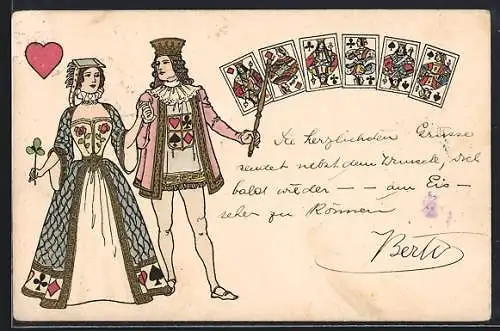 Die herzlichsten Grüsse
sendet nebst dem Wunsche, dich
bald wieder — — am Eis —
sehen zu können
Berta